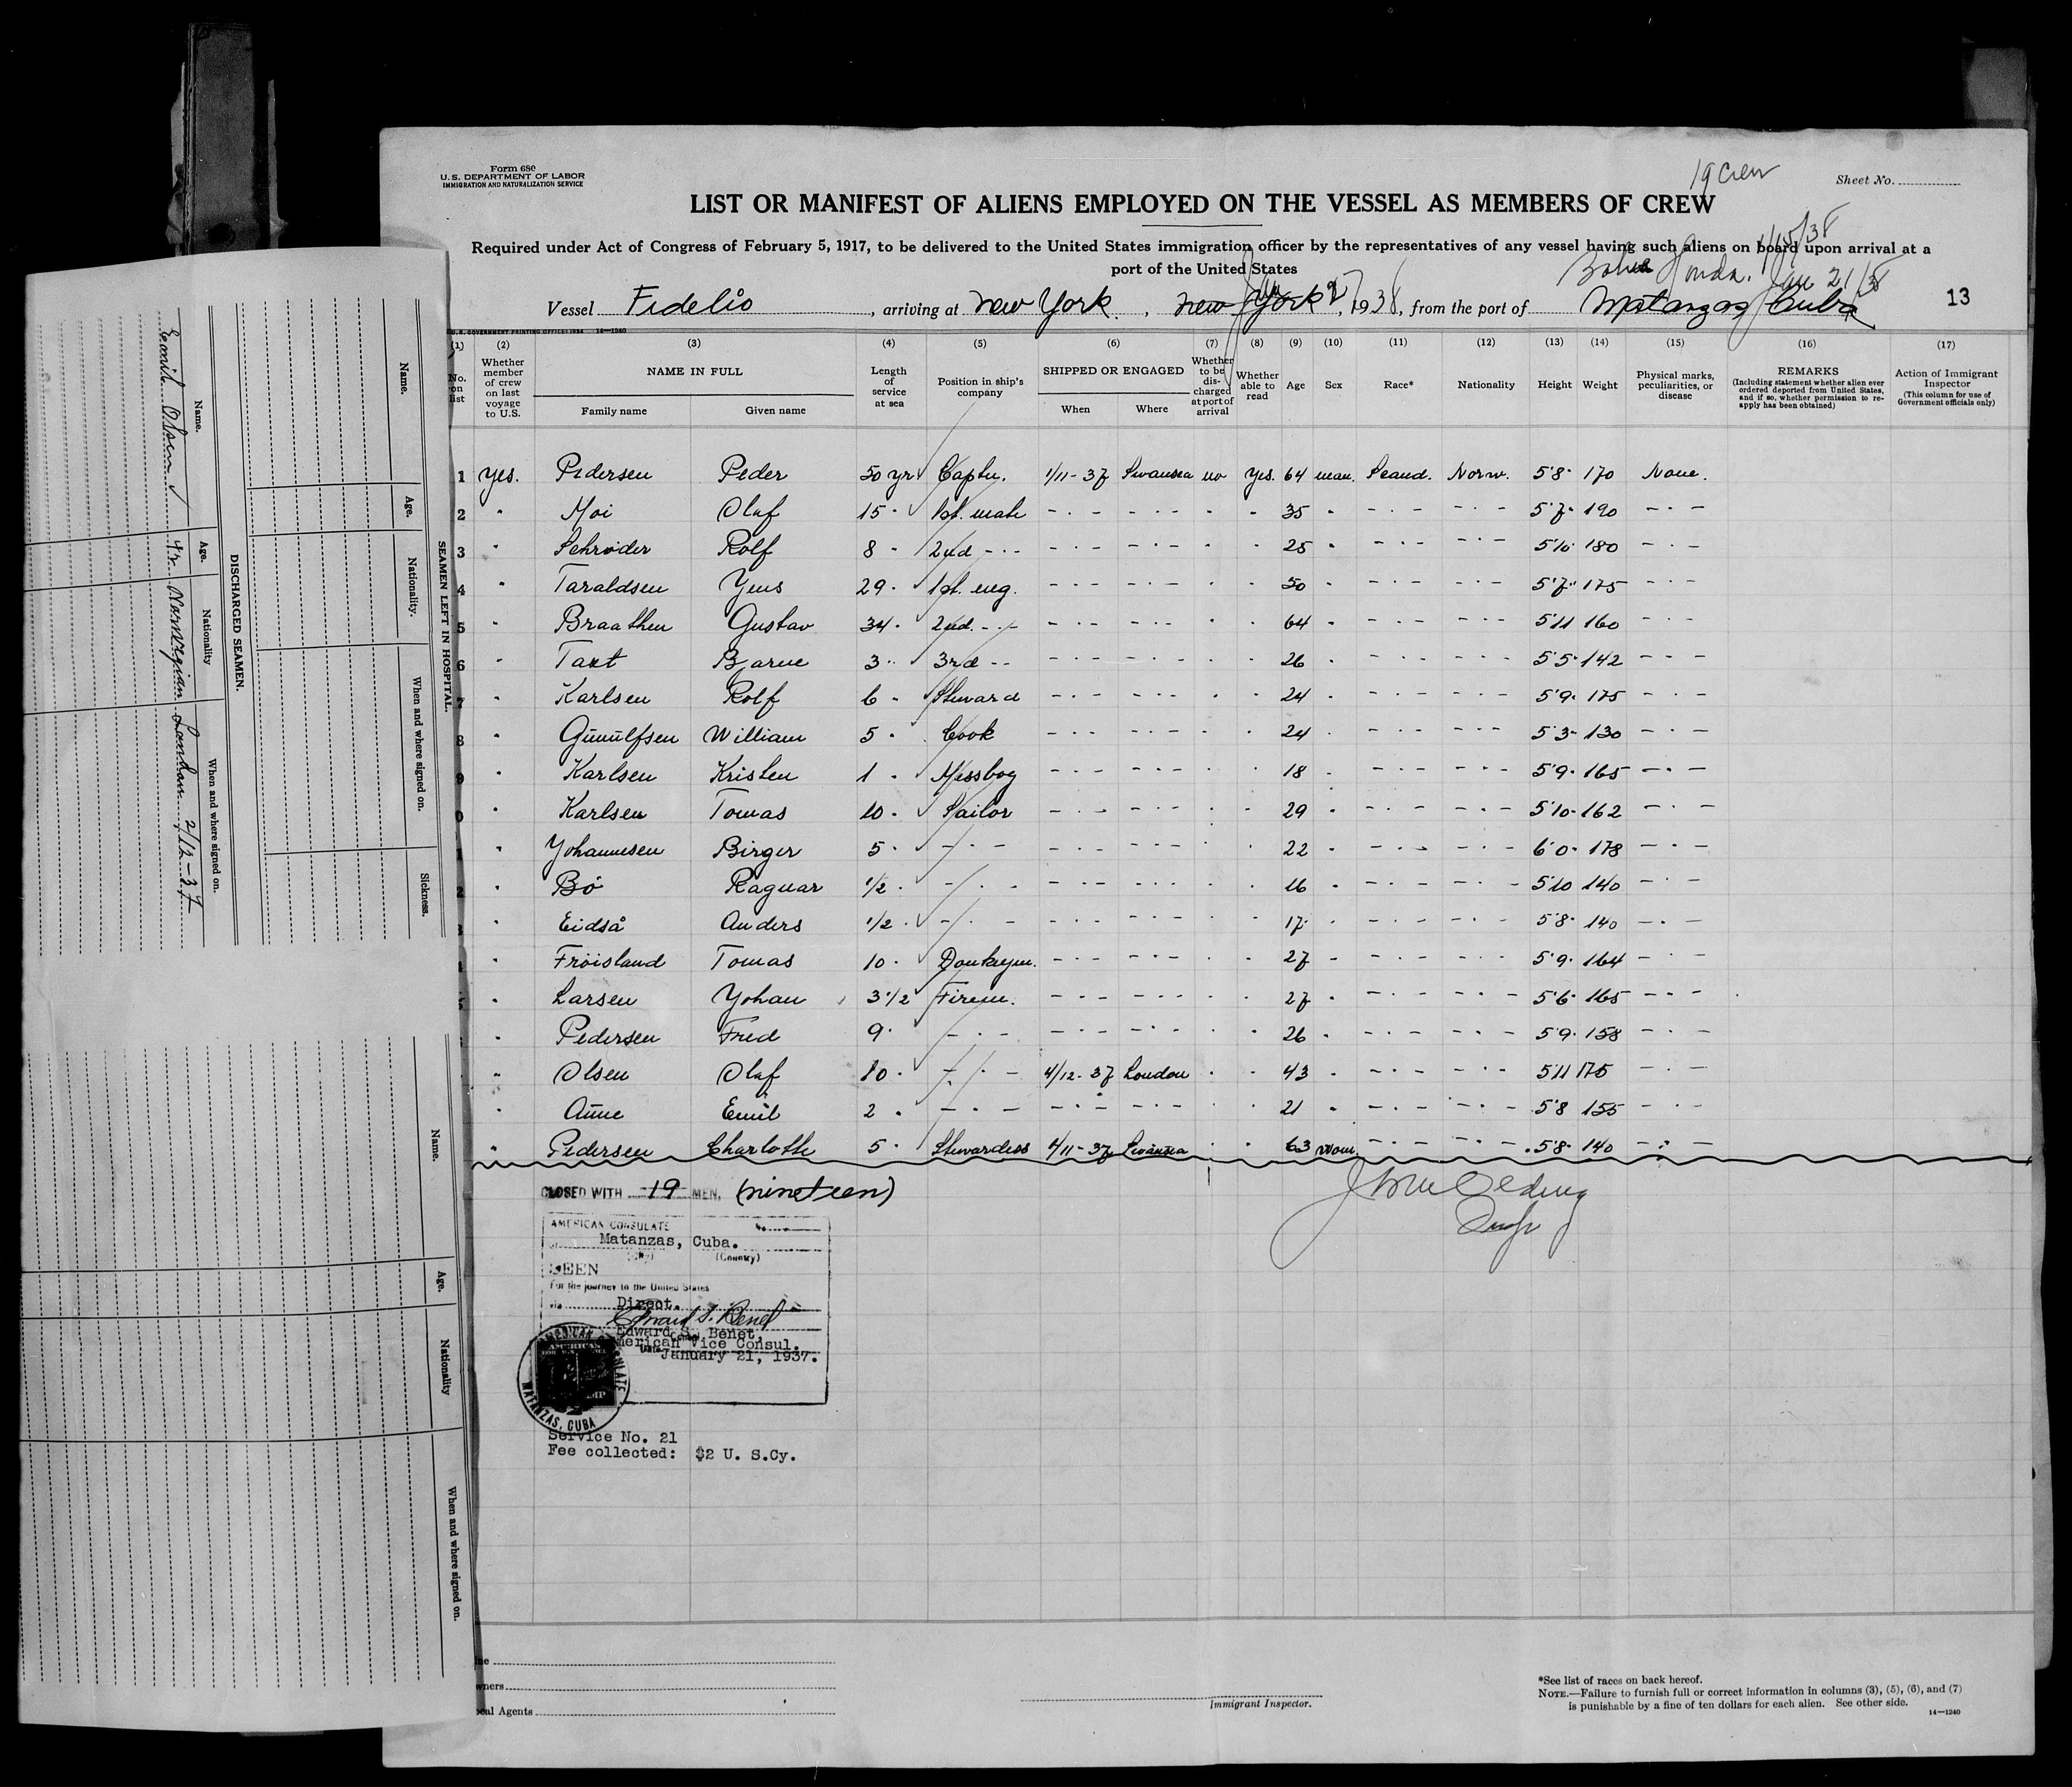 Form 680
U.S. DEPARTMENT OF LABOR
IMMIGRATION AND NATURALIZATION SERVICE
19 crew
Sheet No.
LIST OR MANIFEST OF ALIENS EMPLOYED ON THE VESSEL AS MEMBERS OF CREW
Required under Act of Congress of February 5, 1917, to be delivered to the United States immigration officer by the representatives of any vessel having such aliens on board upon arrival at a
port of the United States
1/15/38
Bahia Honda. Jan 21/38
Vessel Fidelio, arriving at New York, New York Jan 27, 1938, from the port of Matanzas Cuba
13
U.S. GOVERNMENT PRINTING OFFICE: 1934 14—1240
(1) (2) (3) (4) (5) (6) (7) (8) (9) (10) (11) (12) (13) (14) (15) (16) (17)
No. on list
Whether member of crew on last voyage to U.S.
NAME IN FULL
Family name
Given name
Length of service at sea
Position in ship's company
SHIPPED OR ENGAGED
When
Where
Whether to be discharged at port of arrival
Whether able to read
Age
Sex
Race*
Nationality
Height
Weight
Physical marks, peculiarities, or disease
REMARKS
(Including statement whether alien ever ordered deported from United States, and if so, whether permission to reapply has been obtained)
Action of Immigrant Inspector
(This column for use of Government officials only)
1 Yes. Pedersen Peder 50 yr Captn. 1/11-37 Swansea no Yes. 64 man. Scand. Norw. 5'8" 170 None.
2 " Moi Olaf 15 " 1st. mate - " - - " - " " 35 " - " - - " - 5'7" 190 - " -
3 " Schrøder Rolf 8 " 2nd - " - - " - - " - " " 25 " - " - - " - 5'10 180 - " -
4 " Taraldsen Yens 29 " 1st. eng. - " - - " - " " 50 " - " - - " - 5'7" 175 - " -
5 " Braathen Gustav 34 " 2nd. - " - - " - - " - " " 64 " - " - - " - 5'11 160 - " -
6 " Taxt Bjarne 3 " 3rd - - - " - - " - " " 26 " - " - - " - 5'5" 142 - " -
7 " Karlsen Rolf 6 " Steward - " - - " - " " 24 " - " - - " - 5'9" 175 - " -
8 " Gunulfsen William 5 " Cook - " - - " - " " 24 " - " - - " - 5'3" 130 - " -
9 " Karlsen Kristen 1 " Messboy - " - - " - " " 18 " - " - - " - 5'9" 165 - " -
0 " Karlsen Tomas 10 " Sailor - " - - " - " " 29 " - " - - " - 5'10" 162 - " -
1 " Yohannesen Birger 5 " - " - - " - - " - " " 22 " - " - - " - 6'0" 178 - " -
2 " Bø Ragnar 1/2 " - " - - " - - " - " " 16 " - " - - " - 5'10 140 - " -
3 " Eidså Anders 1/2 " - " - - " - - " - " " 17 " - " - - " - 5'8" 140 - " -
" Frøisland Tomas 10 " Donkeym. - " - - " - " " 27 " - " - - " - 5'9" 164 - " -
" Larsen Yohan 3 1/2 Firem. - " - - " - " " 27 " - " - - " - 5'6" 165 - " -
" Pedersen Fred 9 " - " - - " - - " - " " 26 " - " - - " - 5'9" 158 - " -
" Olsen Olaf 10 " - " - 4/12-37 London " " 43 " - " - - " - 5'11 175 - " -
" Aune Emil 2 " - " - - " - - " - " " 21 " - " - - " - 5'8 155 - " -
" Pedersen Charlotte 5 " Stewardess 1/11-37 Swansea " " 63 wom. - " - - " - 5'8" 140 - " -
CLOSED WITH 19 MEN, (nineteen)
AMERICAN CONSULATE
Matanzas, Cuba.
(City) (Country)
SEEN
For the journey to the United States
via Direct.
Edward S. Benet
Edward S. Benet,
American Vice Consul.
Date January 21, 1937.
AMERICAN CONSULATE
MATANZAS, CUBA
Service No. 21
Fee collected: $2 U. S.Cy.
Insp
Immigrant Inspector.
Local Agents
*See list of races on back hereof.
NOTE.—Failure to furnish full or correct information in columns (3), (5), (6), and (7)
is punishable by a fine of ten dollars for each alien. See other side.
14—1240
SEAMEN LEFT IN HOSPITAL.
Name.
Age.
Nationality.
When and where signed on.
Sickness.
DISCHARGED SEAMEN.
Name.
Age.
Nationality
When and where signed on.
Emil Olsen 42 Norwegian London 2/12-37
Name.
Age.
Nationality
When and where signed on.